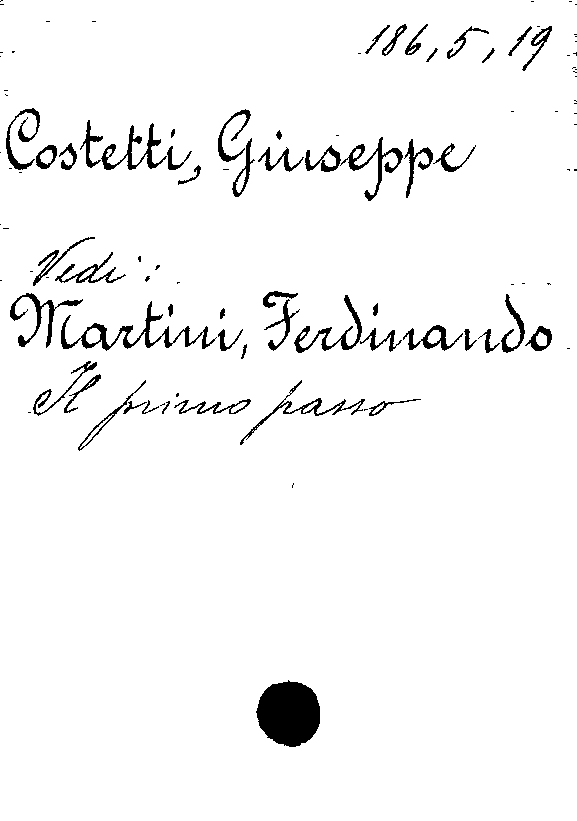 186,5,19
Costetti, Giuseppe
Vedi:
Martini, Ferdinando
Il primo passo